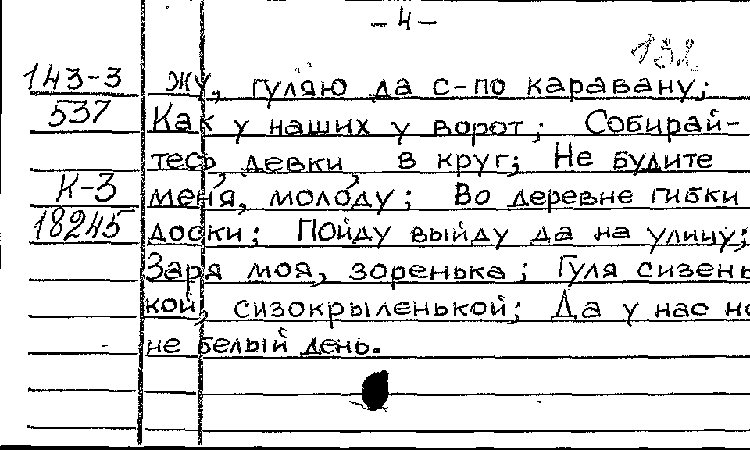 -4-
132
143-3 жу, гуляю да с-по каравану;
537 Как у наших у ворот; Собирай-
тесь, девки, в круг; Не будите
К-3 меня, молоду; Во деревне гибки
18245 доски; Пойду выйду да на улицу;
Заря моя, зоренька; Гуля сизень
кой, сизокрыленькой; Да у нас но
не белый день.